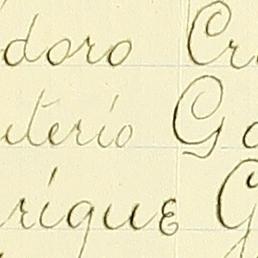 doro Cr
uterio Go
rique G